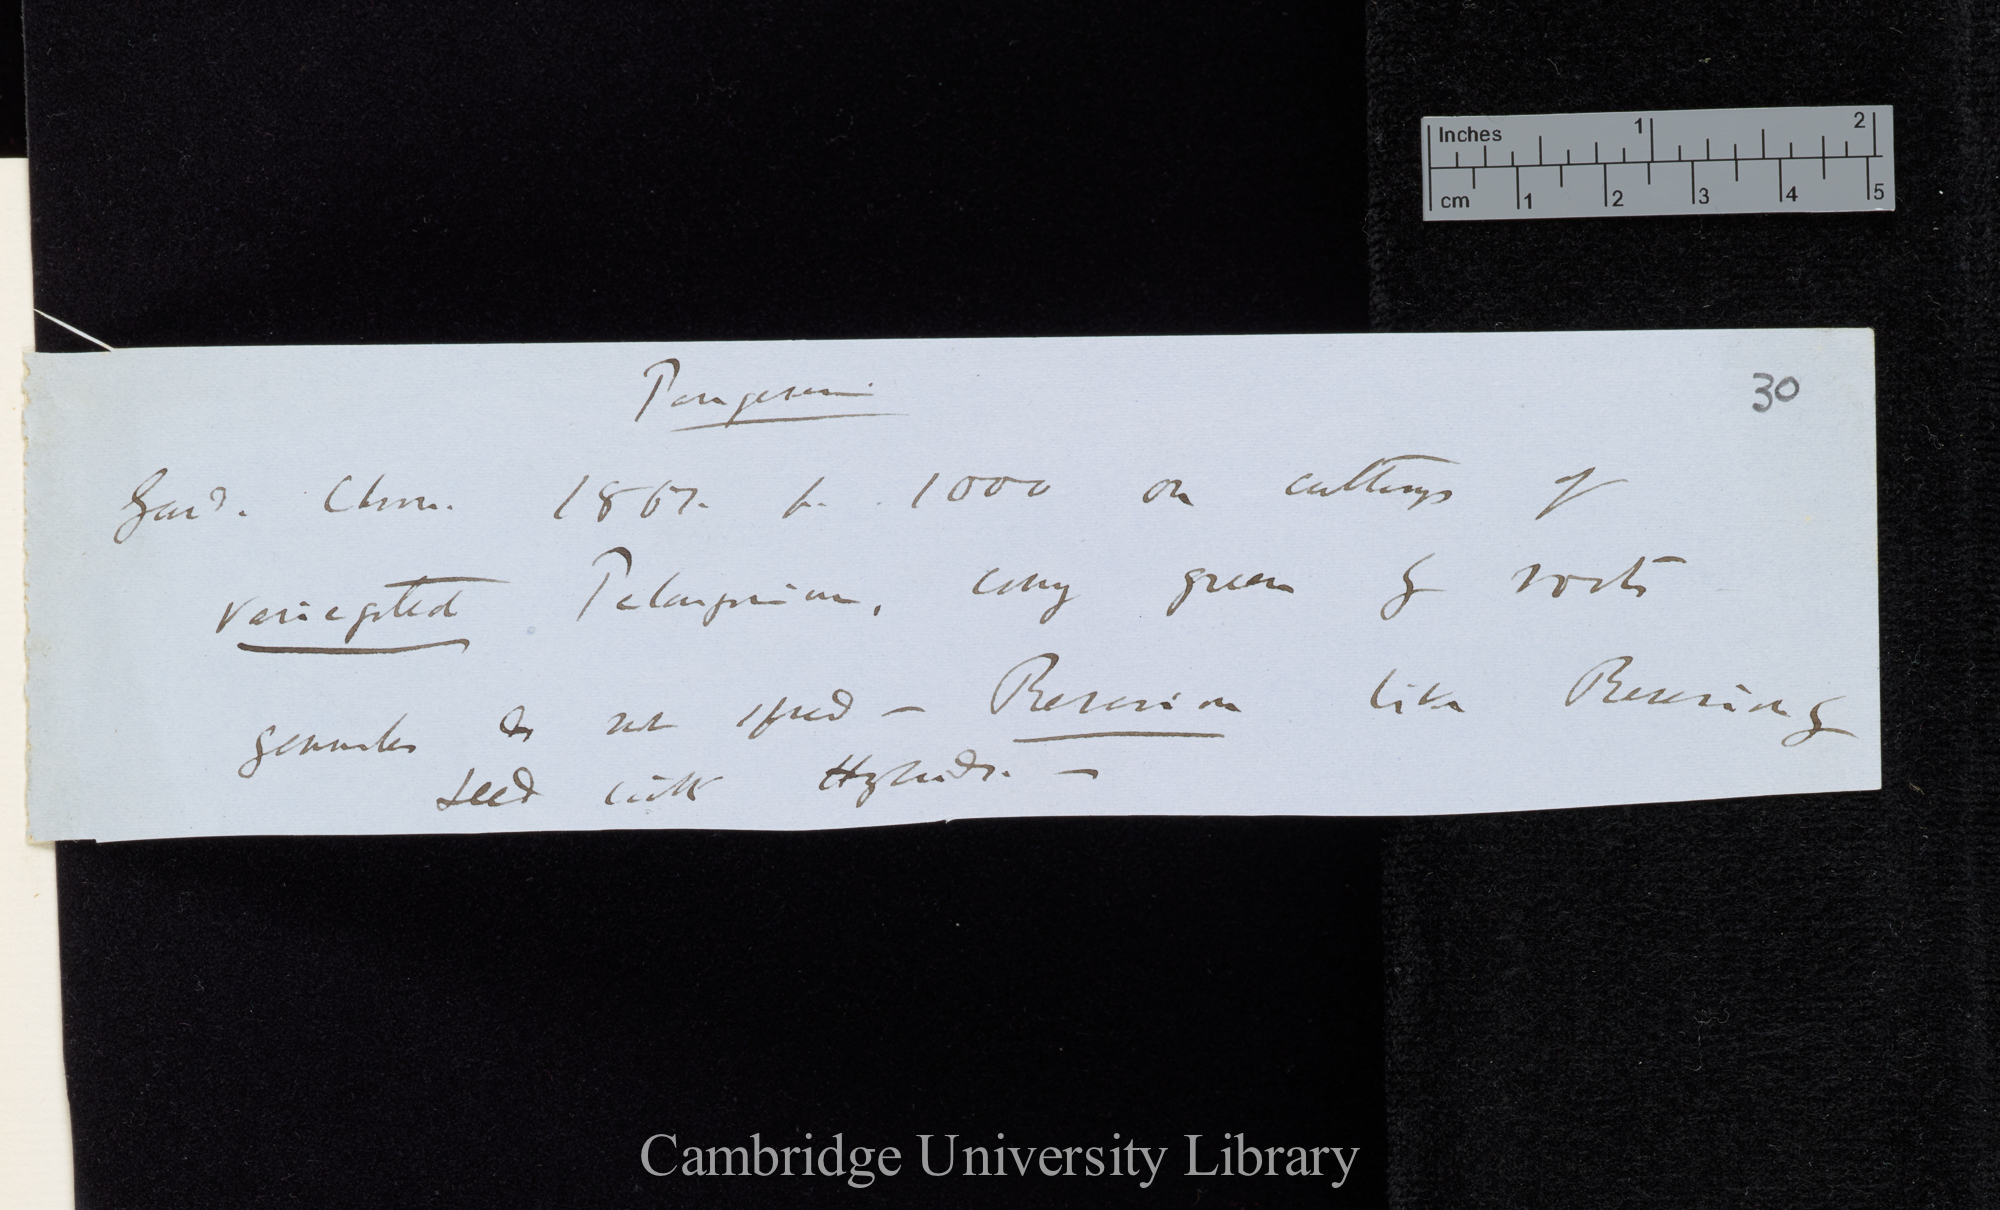 Inches 1 2
cm 1 2 3 4 5
Pangenesis
30
Gard. Chron. 1867. p. 1000 on cuttings of
variegated Pelargonium, coming green of roots
gemmules do not spread — Reversion like Reversion of
seed with Hybrids. —
Cambridge University Library